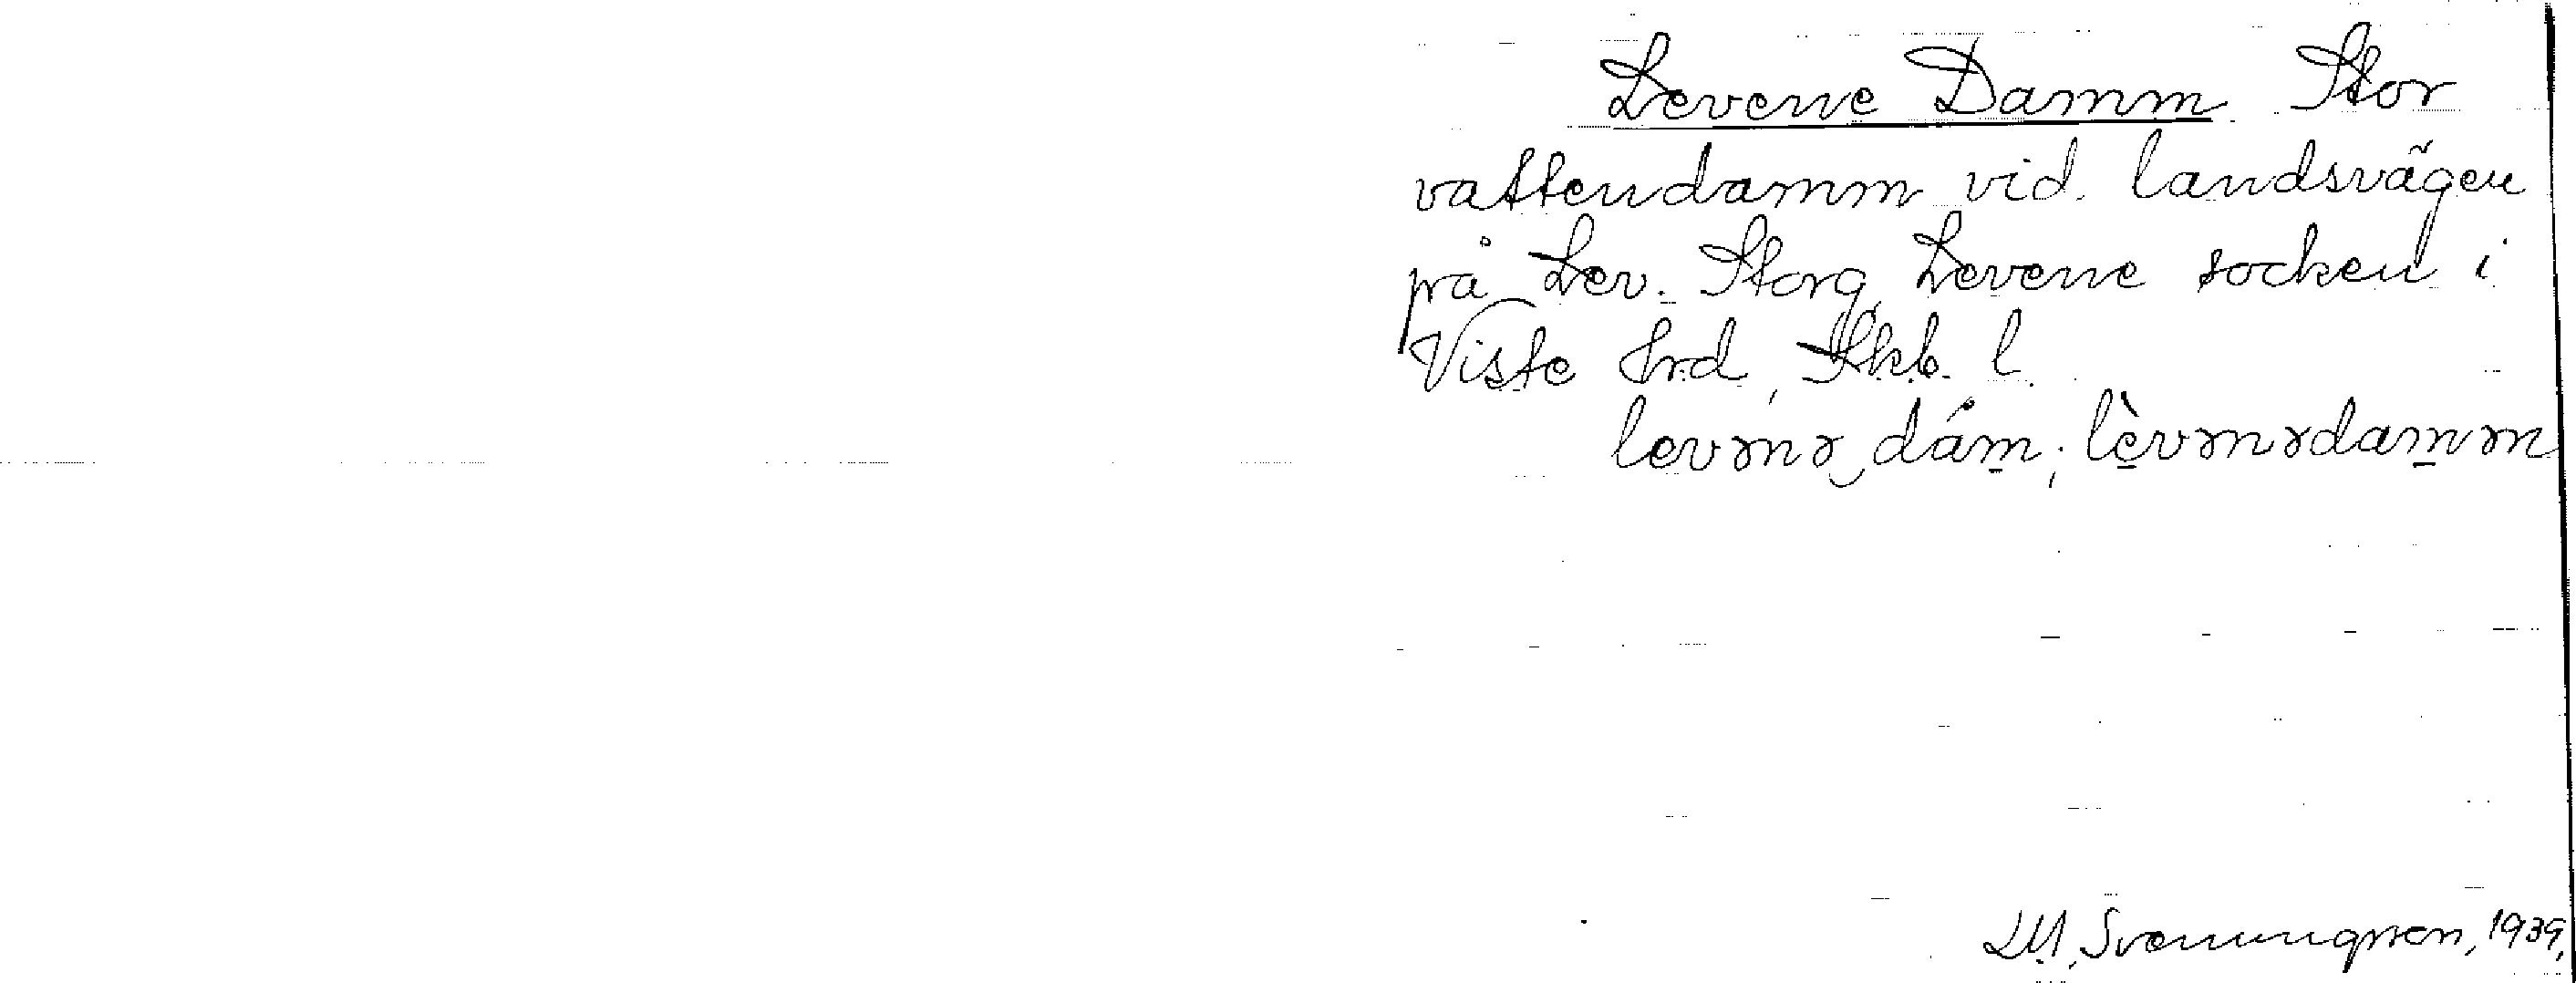 Levene Damm Stor
vattendamm vid landsvägen
på Lev. Storg, Levene socken i
Viste hrd, Skb. l.
levənə dám; lèvənədamm
LM, Svenungsson, 1939,